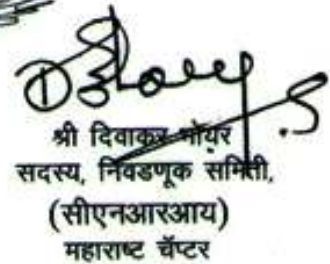 श्री दिवाकर भोयर
सदस्य, निवडणूक समिती,
(सीएनआरआय)
महाराष्ट चॅप्टर